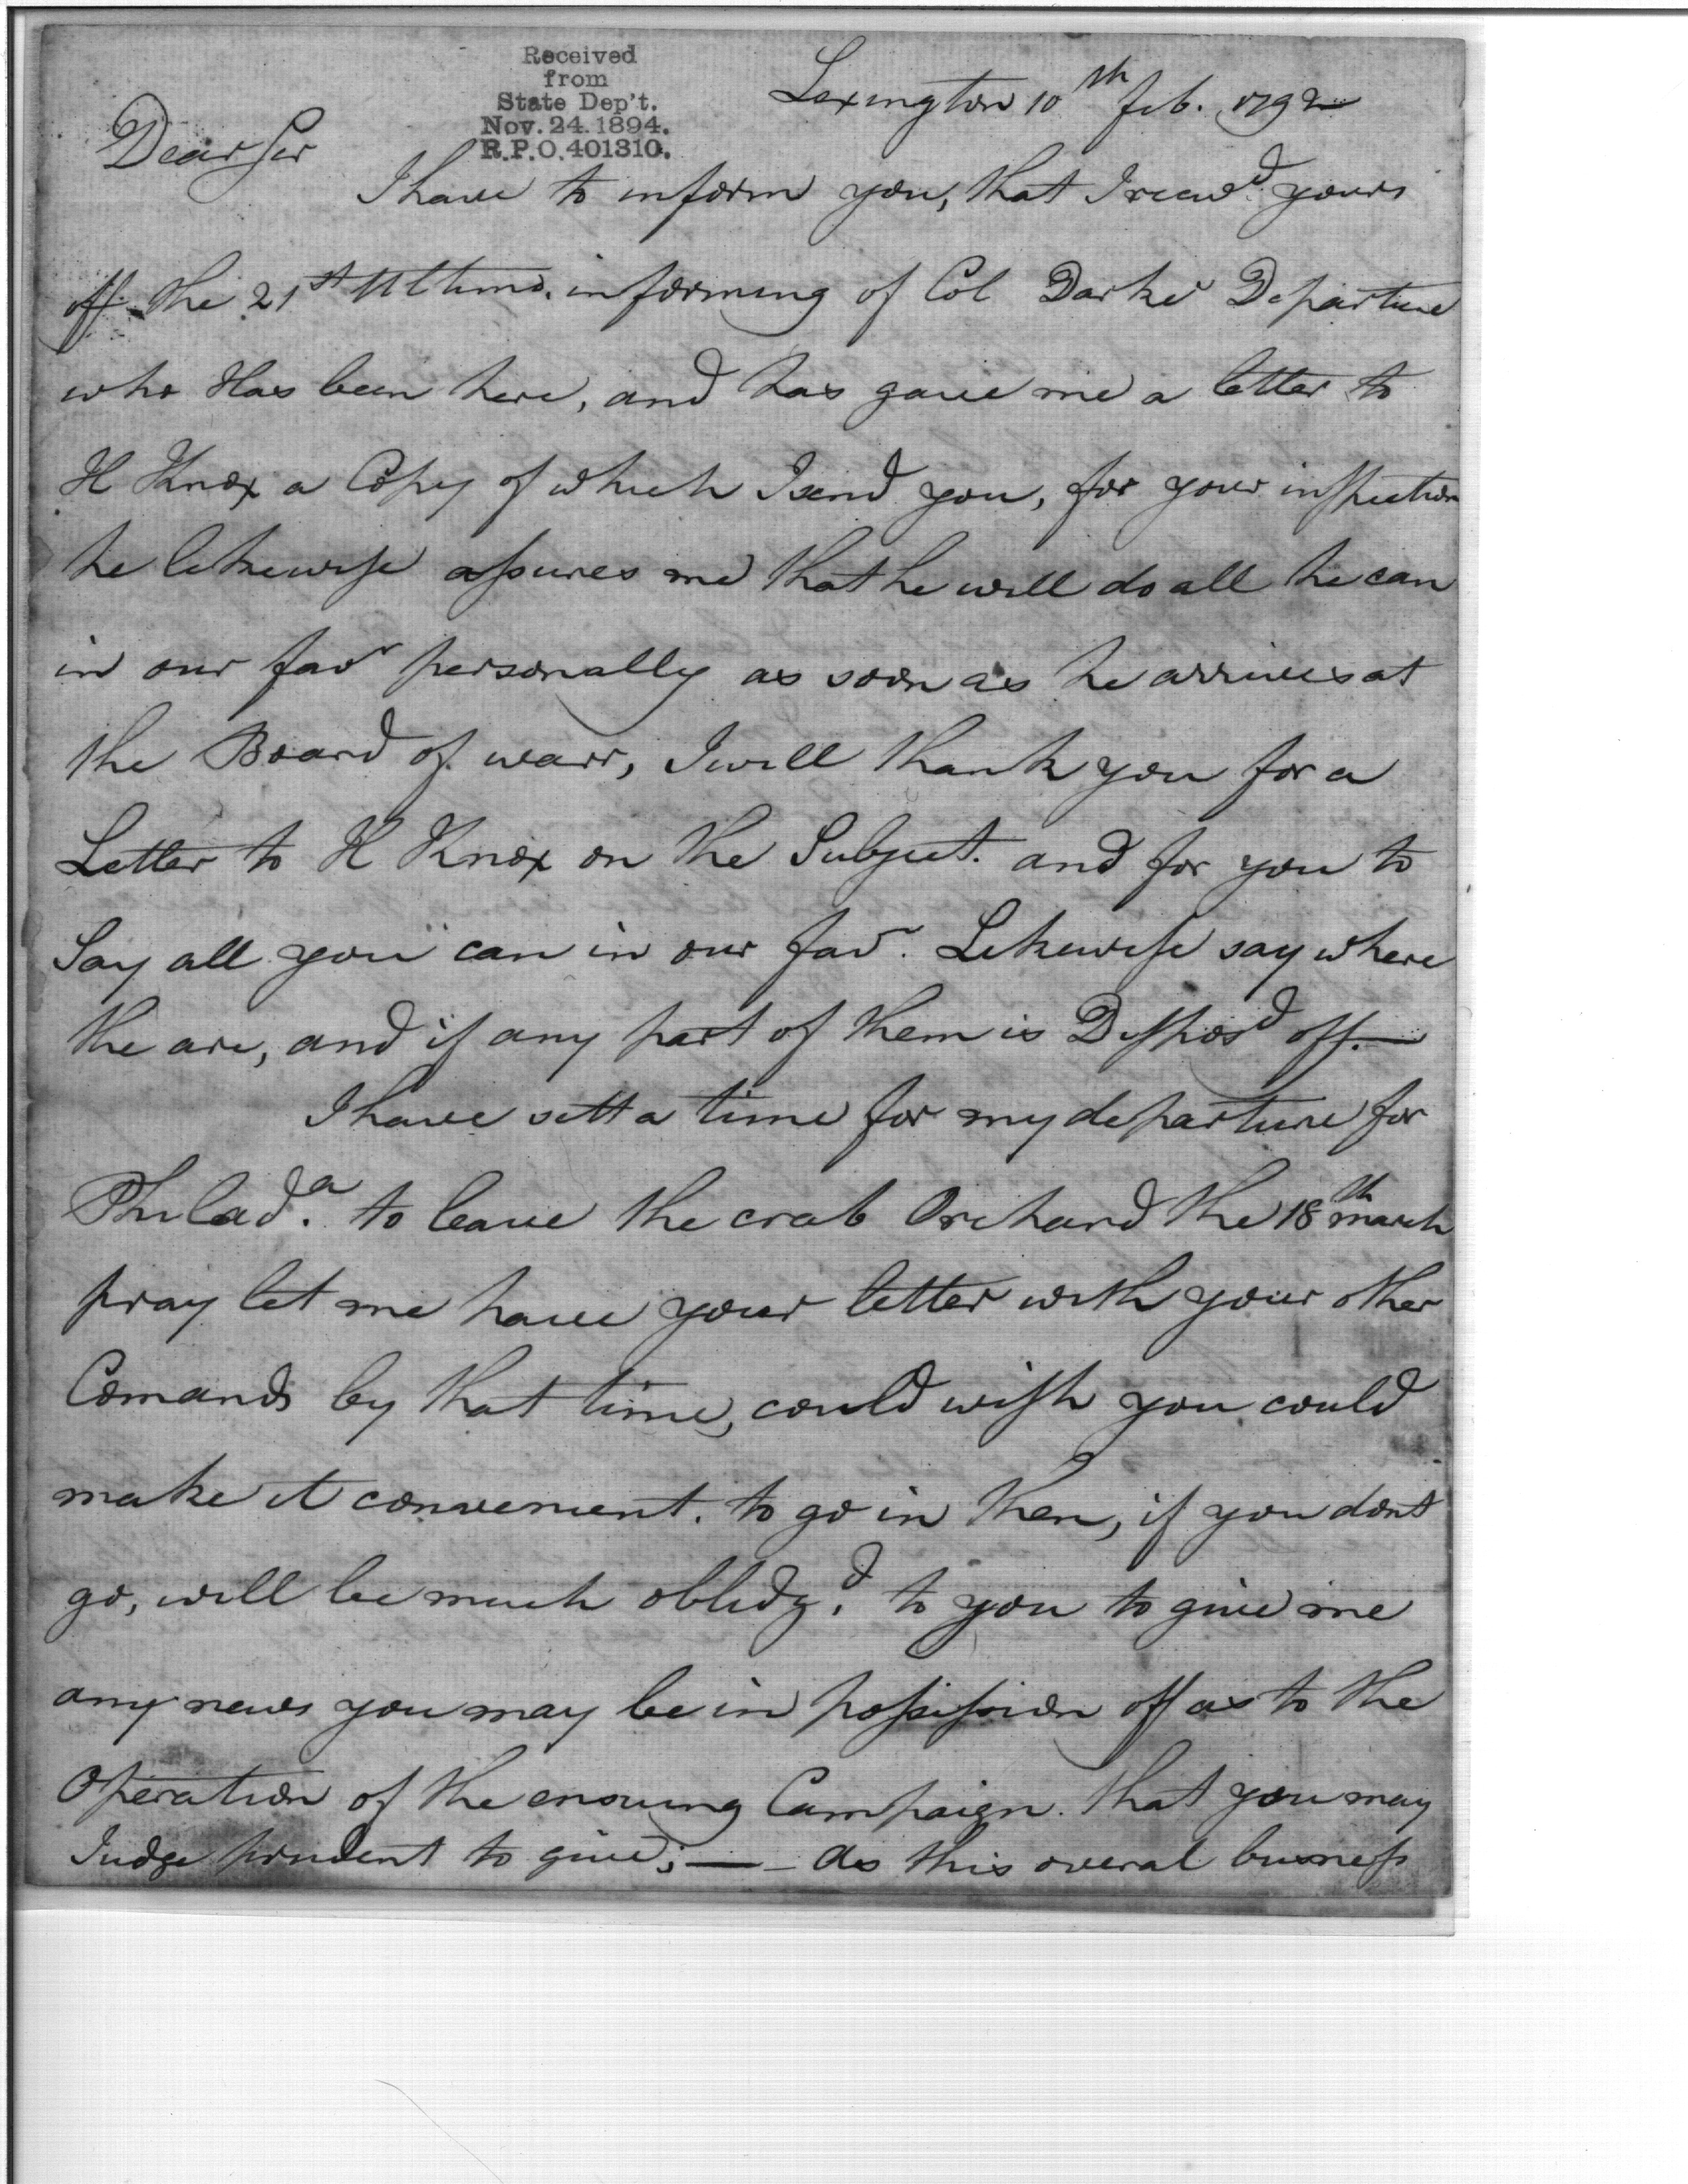 Received
from
State Dep't.
Nov. 24. 1894.
R.P.O. 401310.
Lexington 10th feb. 1792
Dear Sir
I have to inform you, that I recevd. yours
off the 21st Ultimo. informing of Col Darke Departure
who Has been here, and has gave me a letter to
H Knox a Copy of which I send you, for your inspection
he likewise assures me that he will do all he can
in our favr personally as soon as he arrives at
the Board of warr, I will thank you for a
Letter to H Knox on the Subject. and for you to
Say all you can in our favr. Likewise say where
the are, and if any part of them is Disposd off.—
I have sett a time for my departure for
Philada. to leave the crab Orchard the 18th march
pray let me have your letter with your other
Comands by that time, could wish you could
make it convenient. to go in then, if you dont
go, will be much oblidgd. to you to give me
any news you may be in possission off as to the
Operation of the ensuing Campaign. that you may
Judge prudent to give;— — As this overal busness